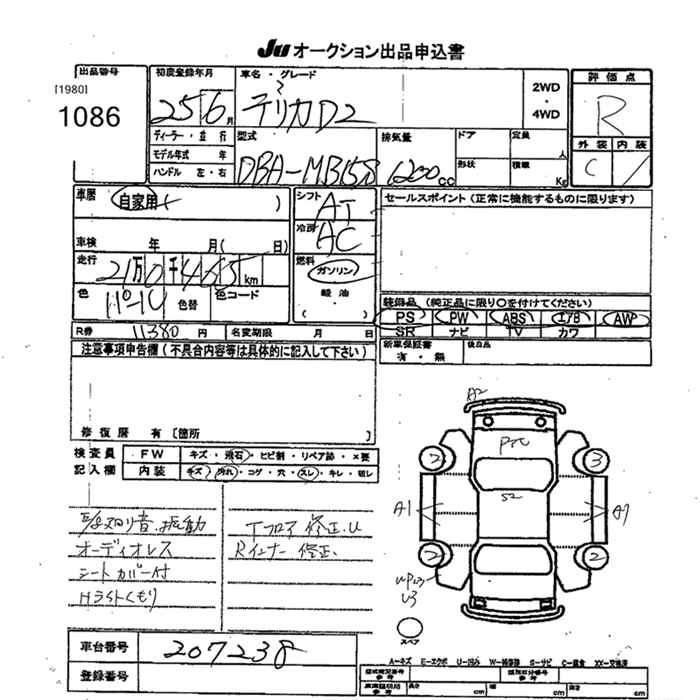 Ju オークション出品申込書
出品番号
[1980]
1086
初度登録年月
25 6月
車名・グレード
デリカD2
2WD
・
4WD
評価点
R
外装 内装
C
ディーラー・並行
モデル年式 年
ハンドル 左・右
型式
DBA-MB15S
排気量
1200cc
ドア
形状
定員
人
積載
Kg
車歴
自家用
( )
車検 年 月( 日)
走行
21万0千465km
色
パール
色替
色コード
シフト
AT
冷房
AC
燃料
ガソリン
軽油
( )
セールスポイント(正常に機能するものに限ります)
装備品(純正品に限り○を付けてください)
PS PW ABS エアB AW
SR ナビ TV カワ
新車保証書
有・無
後日品
R券 11380円
名変期限 月 日
注意事項申告欄(不具合内容等は具体的に記入して下さい)
修復歴 有 〔箇所 〕
検査員
記入欄
FW
キズ・飛石・ヒビ割・リペア跡・×要
内装
キズ・汚れ・コゲ・穴・スレ・キレ・切レ
オーディオレス
シートカバー付
Hライトくもり
Tフロア 修正.U
Rインナー 修正.
A2
2
3
S2
A1
2
2
U3
スペア
車台番号
207238
登録番号
A-キズ E-エクボ U-凹み W-補修跡 S-サビ C-腐食 XX-交換済
長さ cm
幅 cm
高さ cm